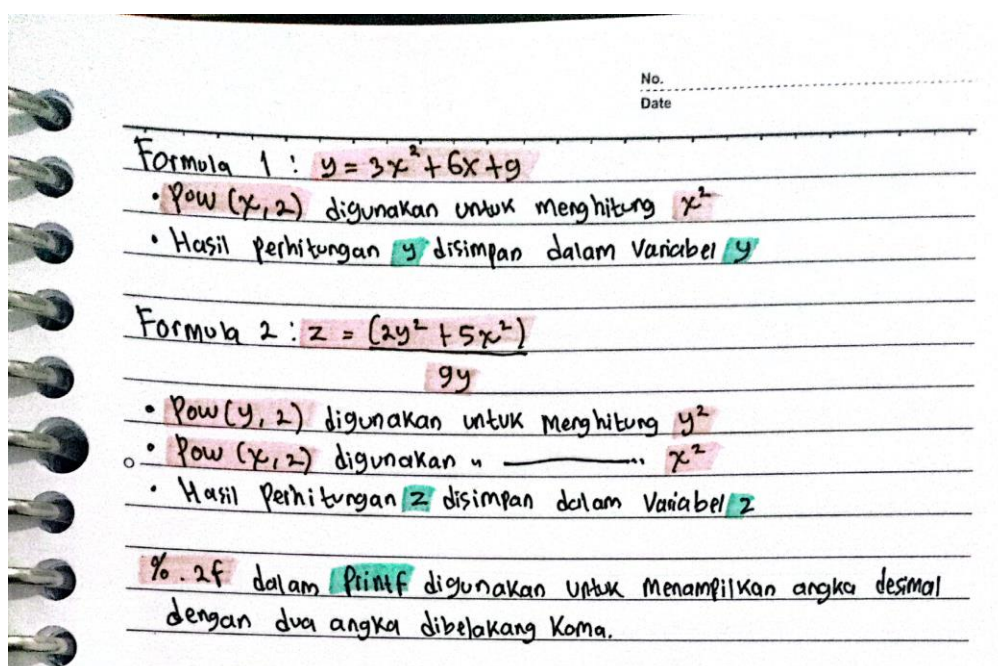 No.
Date
Formula 1 : y = 3x² + 6x + 9
• Pow (x, 2) digunakan untuk menghitung x²
• Hasil perhitungan y disimpan dalam Variabel y
Formula 2 : z = (2y² + 5x²)
9y
• Pow (y, 2) digunakan untuk menghitung y²
• Pow (x, 2) digunakan " ———— " x²
• Hasil Perhitungan z disimpan dalam Variabel z
% . 2f dalam Printf digunakan untuk menampilkan angka desimal
dengan dua angka dibelakang koma.